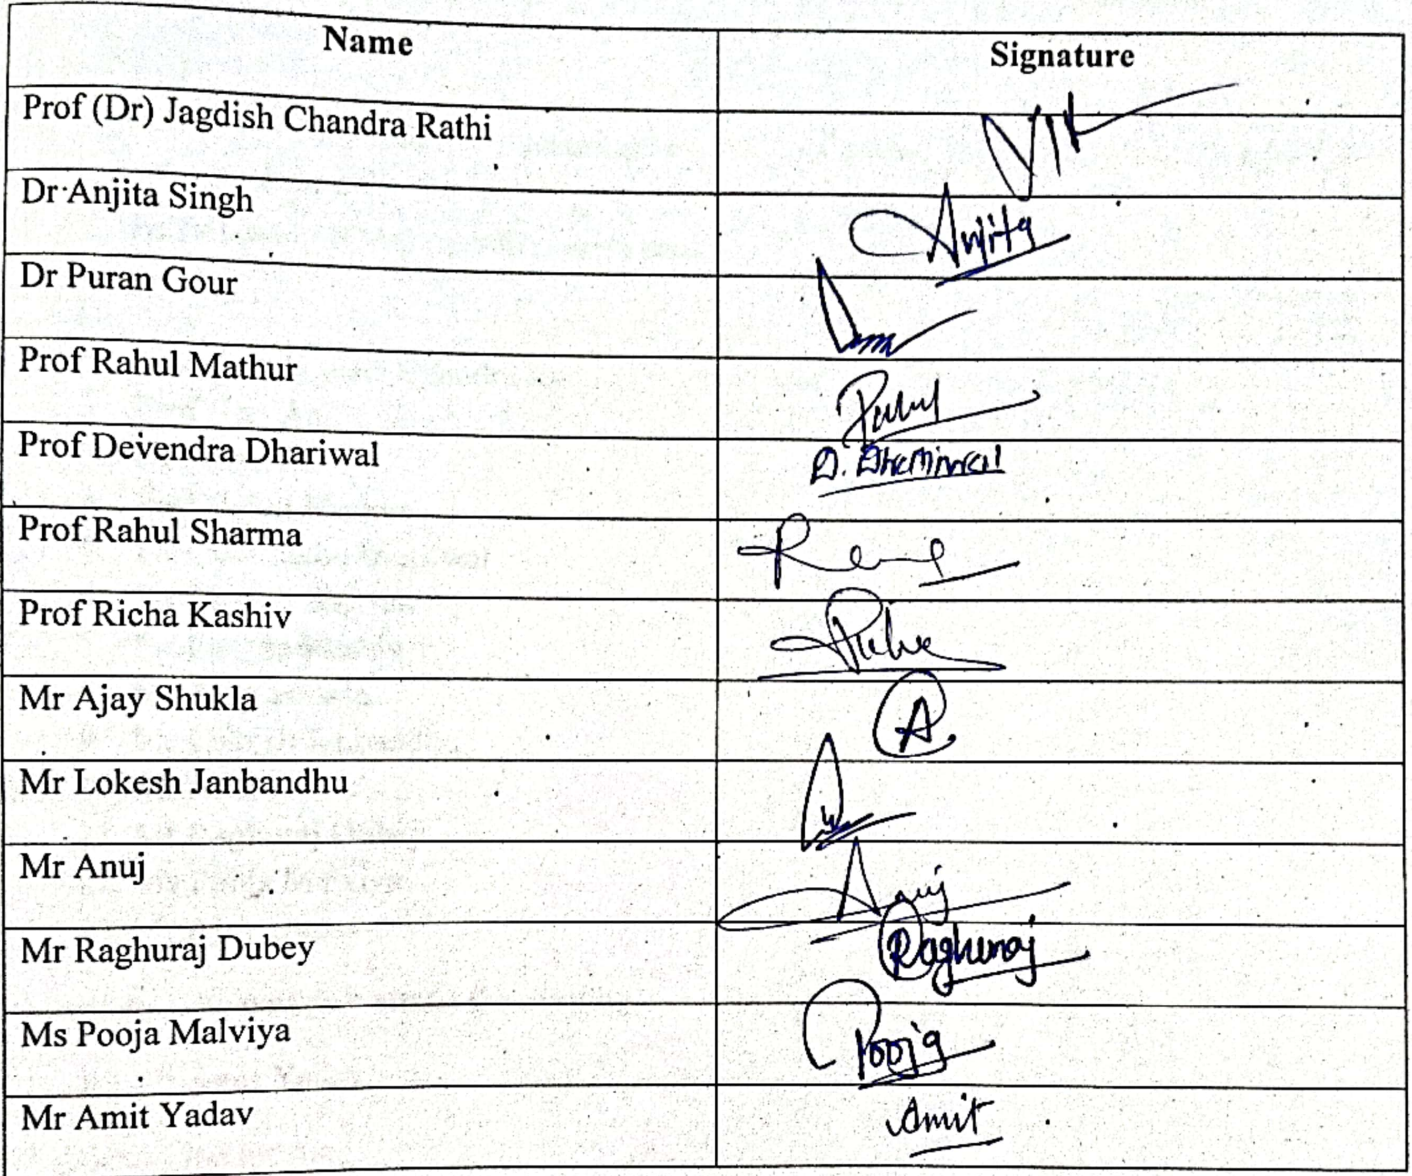 Name Signature
Prof (Dr) Jagdish Chandra Rathi
Dr Anjita Singh Anjita
Dr Puran Gour
Prof Rahul Mathur Rahul
Prof Devendra Dhariwal D. Dhariwal
Prof Rahul Sharma
Prof Richa Kashiv
Mr Ajay Shukla A
Mr Lokesh Janbandhu
Mr Anuj Anuj
Mr Raghuraj Dubey Raghuraj
Ms Pooja Malviya Pooja
Mr Amit Yadav Amit